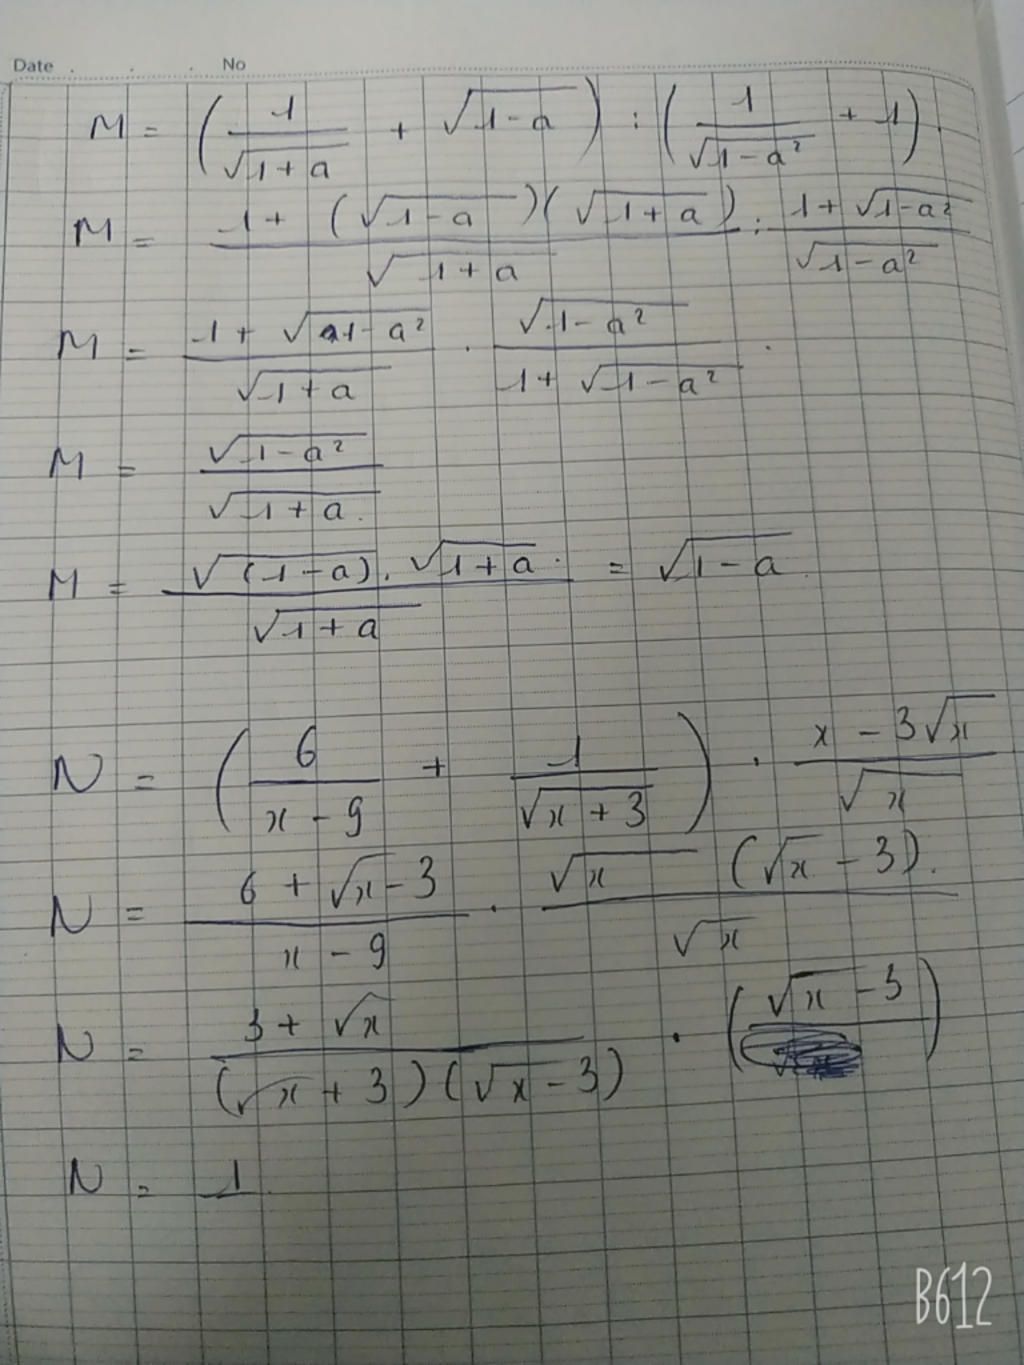 Date . . . No
M = (1/√(1+a) + √(1-a)) : (1/√(1-a²) + 1).
M = (1 + (√(1-a))(√(1+a)))/√(1+a) : (1+√(1-a²))/√(1-a²)
M = (1 + √(1-a²))/√(1+a) . √(1-a²)/(1+ √(1-a²)) .
M = √(1-a²)/√(1+a).
M = (√(1-a) . √(1+a).)/√(1+a) = √(1-a).
N = (6/(x-9) + 1/(√x+3)) . (x-3√x)/√x
N = (6+√x-3)/(x-9) . (√x (√x-3).)/√x
N = (3+√x)/((√x+3)(√x-3)) . (√x-3)
N = 1
B612